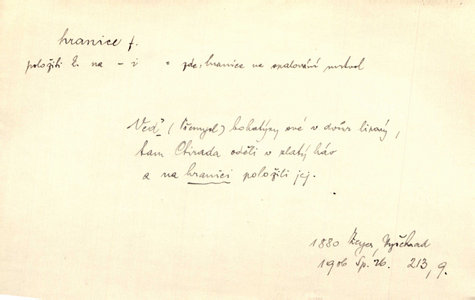 hranice f.
položiti k. na – i = zde: hranice na spalování mrtvol
Ved' (Přemysl) bohatýry své v dvůr lipový,
tam Ctirada oděli v zlatý háv
a na hranici položili jej.
1880 Zeyer, Vyšehrad
1906 Sp. 26. 213, 9.